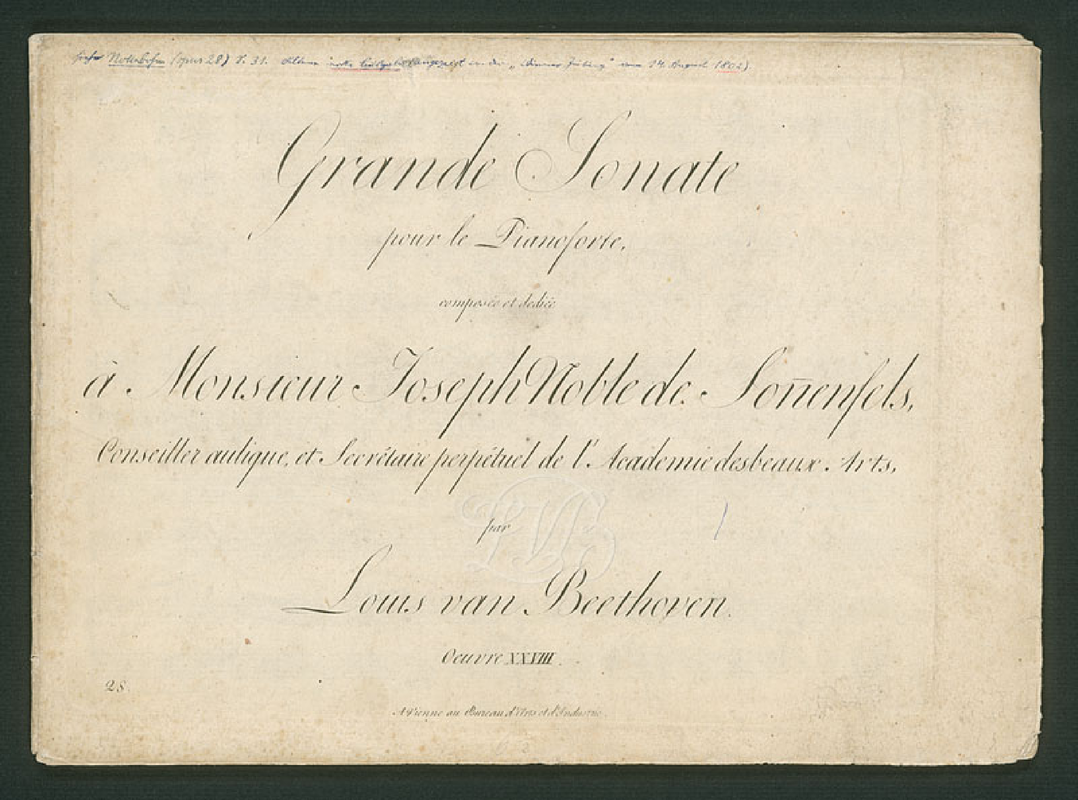 (opus 28) S. 31. angezeigt in der „Wiener Zeitung" vom 14. August 1802)
Grande Sonate
pour le Pianoforte,
composée et dediée
à Monsieur Joseph Noble de Soñenfels,
Conseiller aulique, et Secrétaire perpétuel de l'Academie des beaux Arts,
par
LVB
Louis van Beethoven.
Oeuvre XXVIII.
28
A Vienne au Bureau d'Arts et d'Industrie.